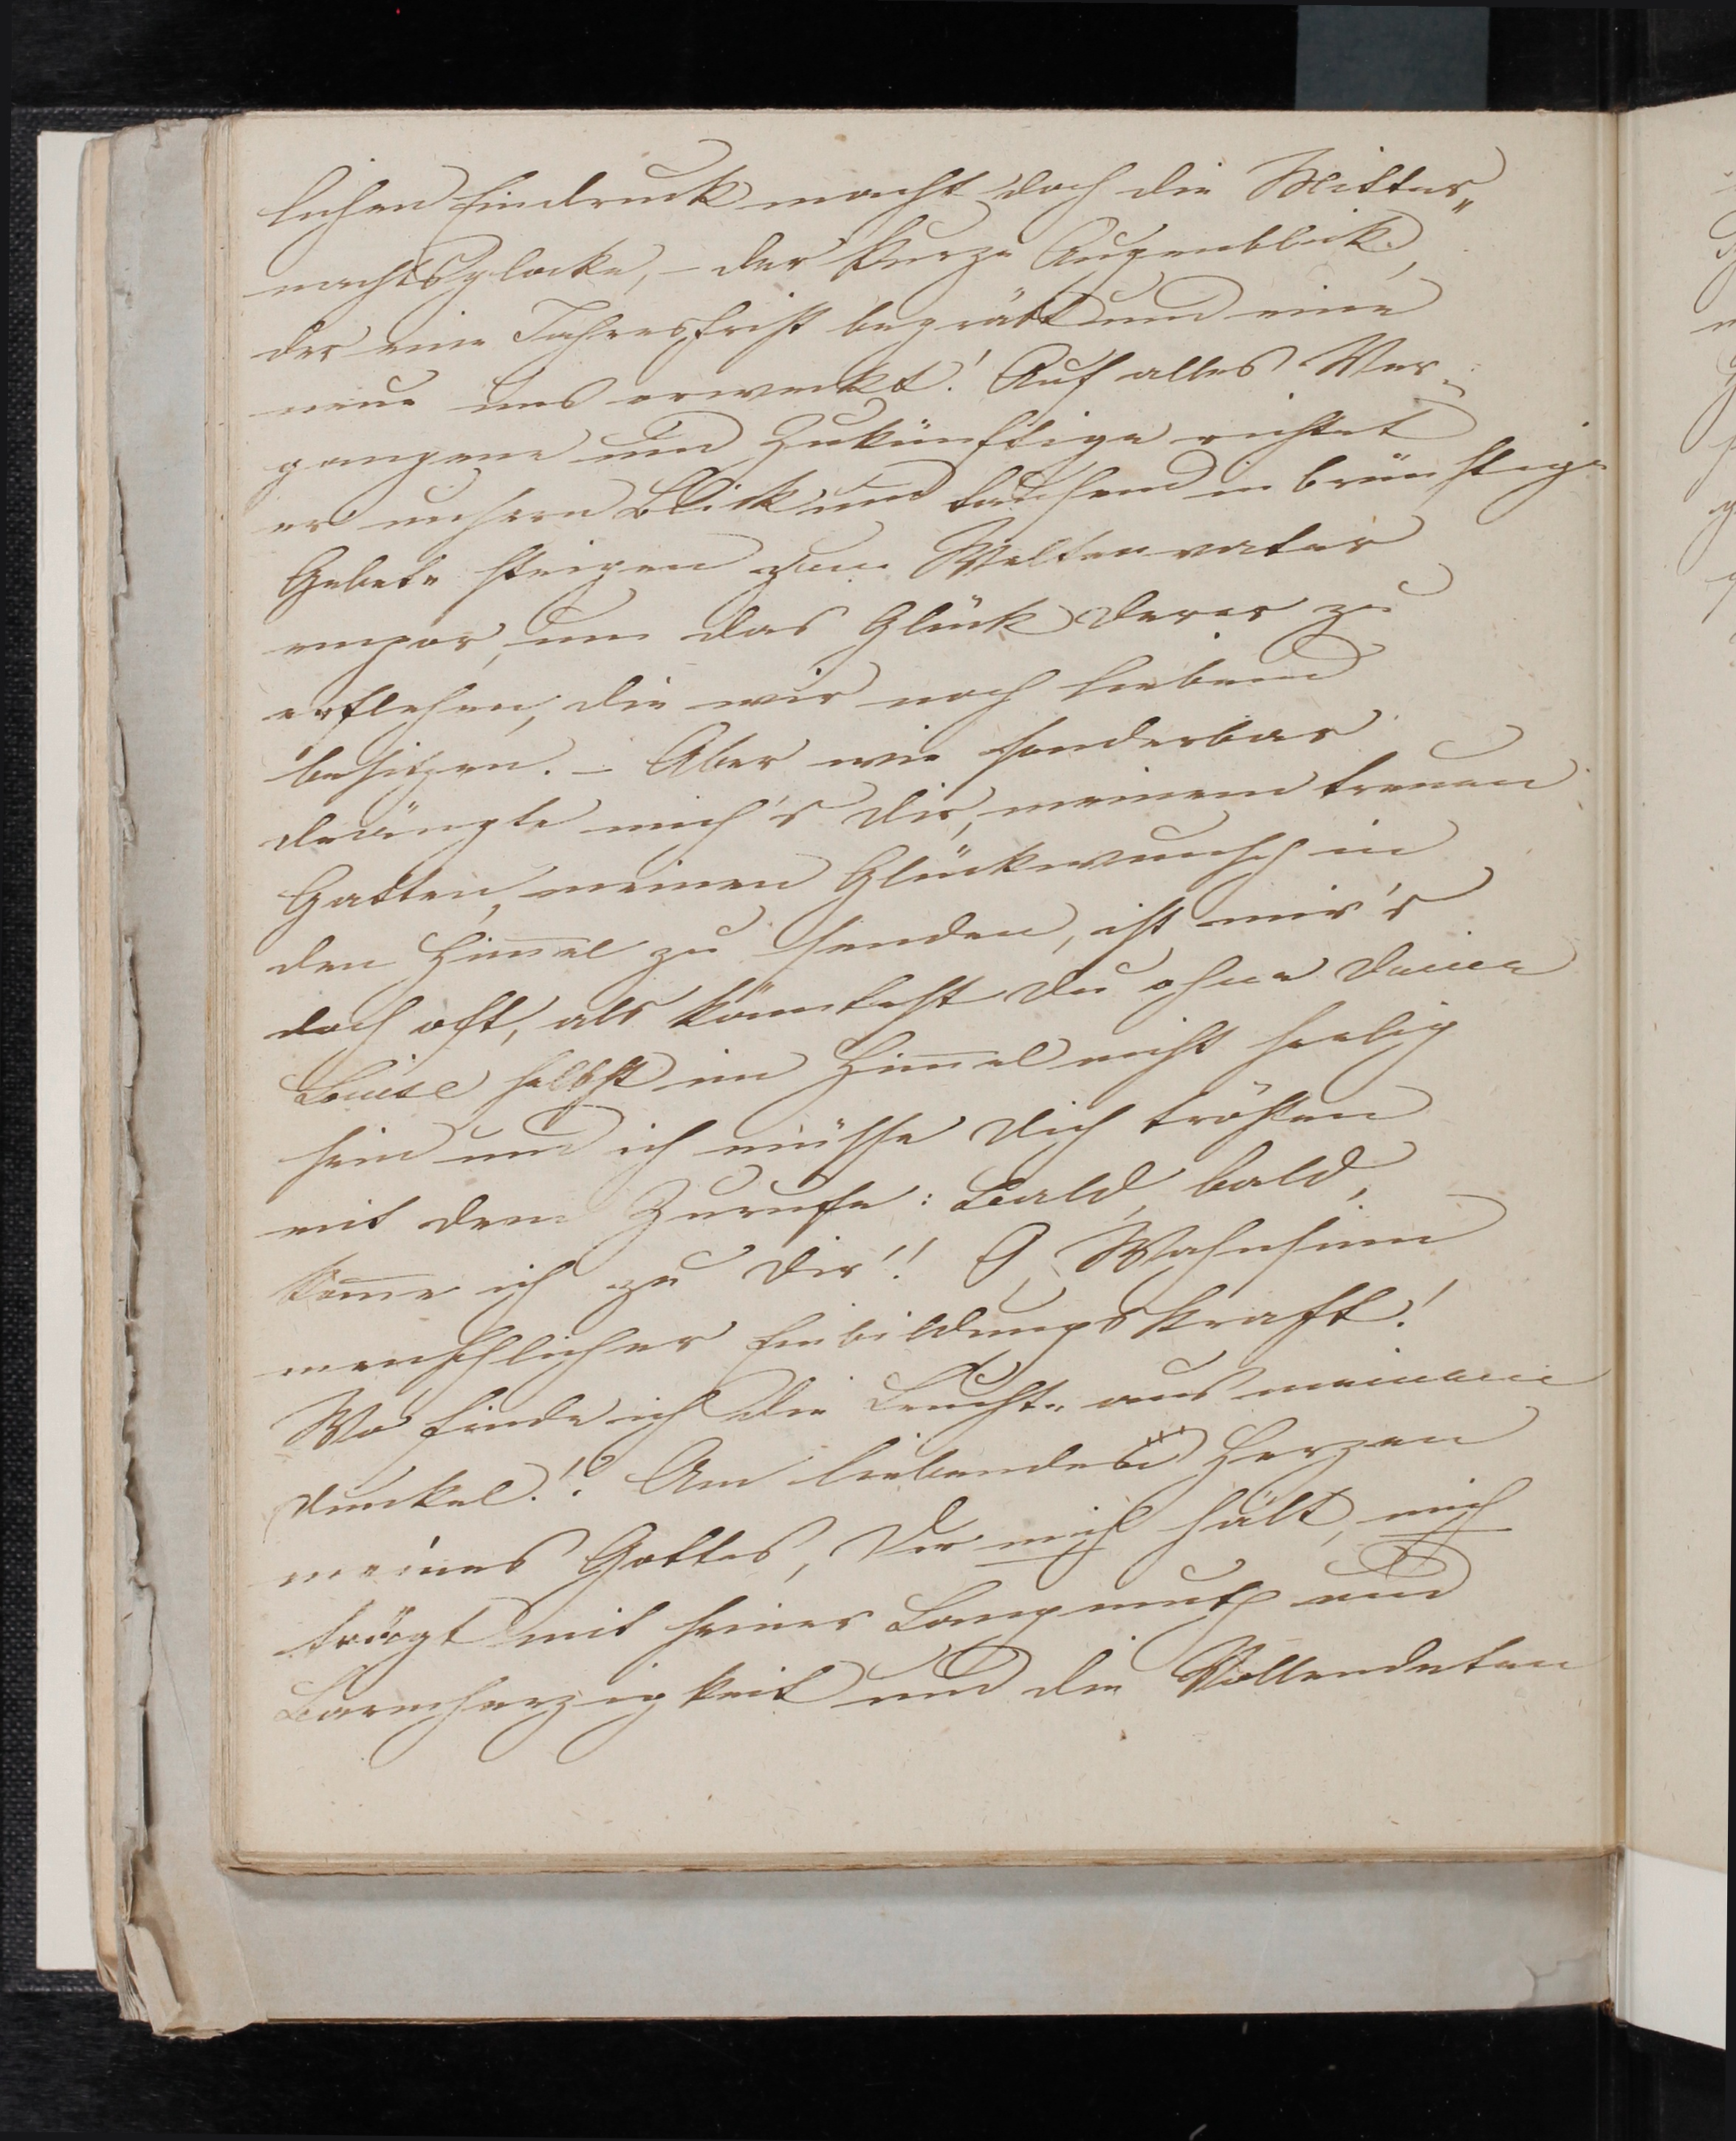 lichen Eindruck macht doch die Mitter„
nachtsglocke, – der kurze Augenblick,
der eine Jahresfrist begräbt und eine
neue uns erweckt! Auf alles Ver-
gangene und Zukünftige richtet
er unsern Blick und tausend inbrünstige
Gebete steigen zum Weltenvater
empor, um das Glück derer zu
erflehen, die wir noch liebend
besitzen. – Aber wie sonderbar
drängte mich's dir, meinem treuen
Gatten, meinen Glückwunsch in
den Him̅el zu senden, ist mir's
doch oft, als könntest du ohne deine
Louise selbst im Him̅el nicht seelig
sein und ich müsse dich trösten
mit dem Zurufe: Bald, bald,
kom̅e ich zu dir!! O, Wahnsinn
menschlicher Einbildungskraft!
Wo finde ich die Leuchte aus meinem
Dunkel!? Am liebenden Herzen
meines Gottes, der mich hält, mich
trägt mit seiner Langmuth und
Barmherzigkeit und die Vollendeten